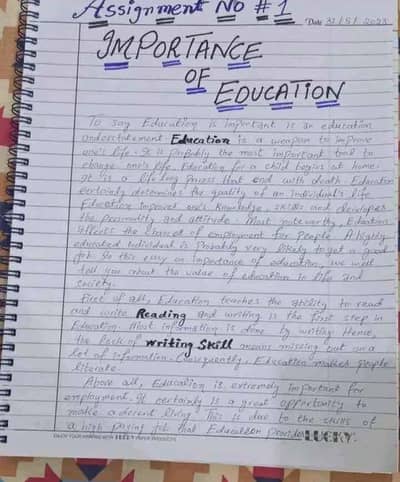 Assignment No # 1
Date 31/5/2023
IMPORTANCE
OF
EDUCATION
To say Education is important is an education
understatement Education is a weapon to improve
one's life. It is probably the most important tool to
change one's life. Education for a child begins at home.
It is a life long process that end with death. Education
certainly determines the quality of an individual's life
Education improves one's knowledge, skills and develops
the personality and attitude. Most noteworthy, Education
affects the chances of employment for people. A highly
educated individual is probably very likely to get a good
job. In this essay on importance of education, we will
tell you about the value of education in life and
society.
First of all, Education teaches the ability to read
and write Reading and writing is the first step in
Education. Most information is done by writing. Hence,
the lack of writing skill means missing out on a
lot of information. Consequently, Education makes people
literate.
Above all, Education is extremely important for
employment. It certainly is a great opportunity to
make a decent living. This is due to the skills of
a high paying job that Education provides
LUCKY